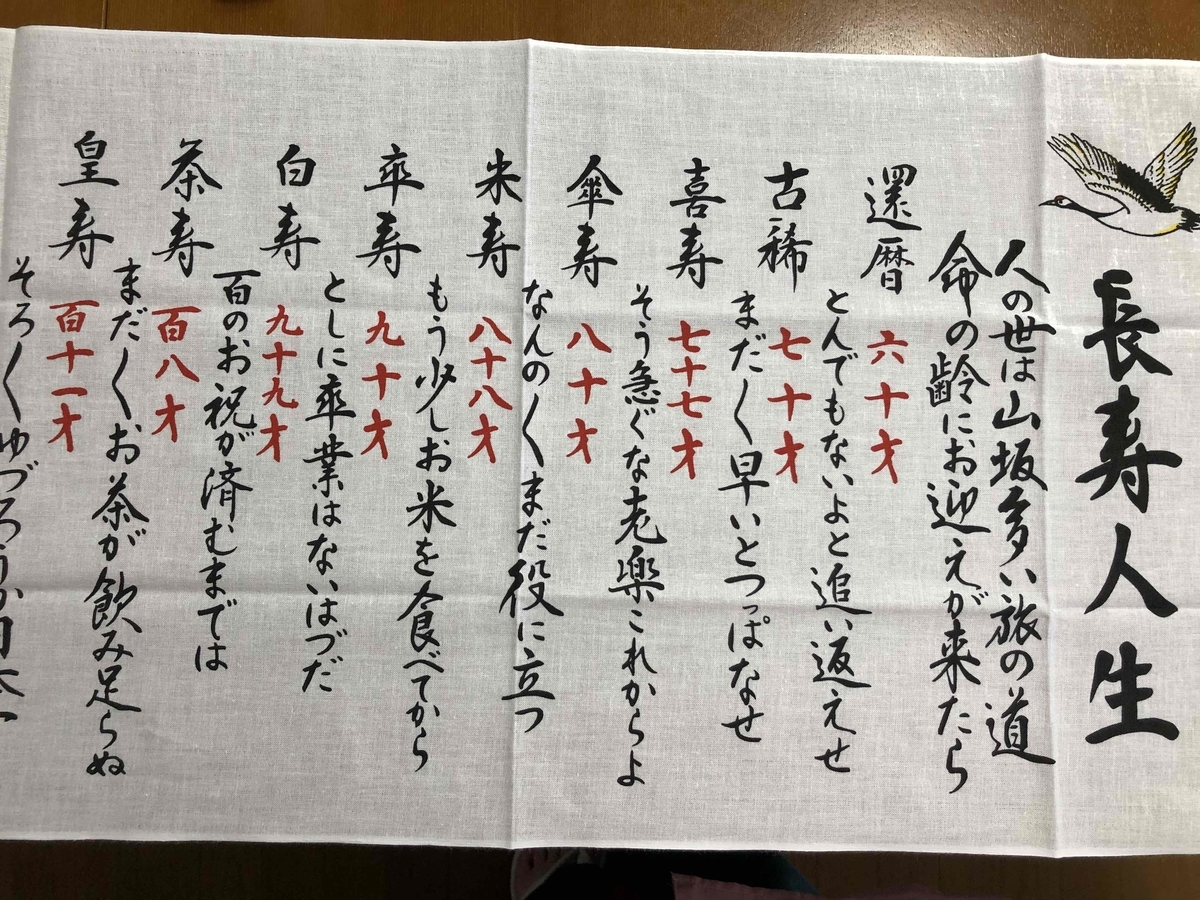 長寿人生
人の世は山坂多い旅の道
命の齢にお迎えが来たら
還暦 六十才
とんでもないよと追い返えせ
古稀 七十才
まだ〱早いとつっぱなせ
喜寿 七十七才
そう急ぐな老楽これからよ
傘寿 八十才
なんの〱まだ役に立つ
米寿 八十八才
もう少しお米を食べてから
卒寿 九十才
としに卒業はないはづだ
白寿 九十九才
百のお祝が済むまでは
茶寿 百八才
まだ〱お茶が飲み足らぬ
皇寿 百十一才
そろ〱ゆづろうか